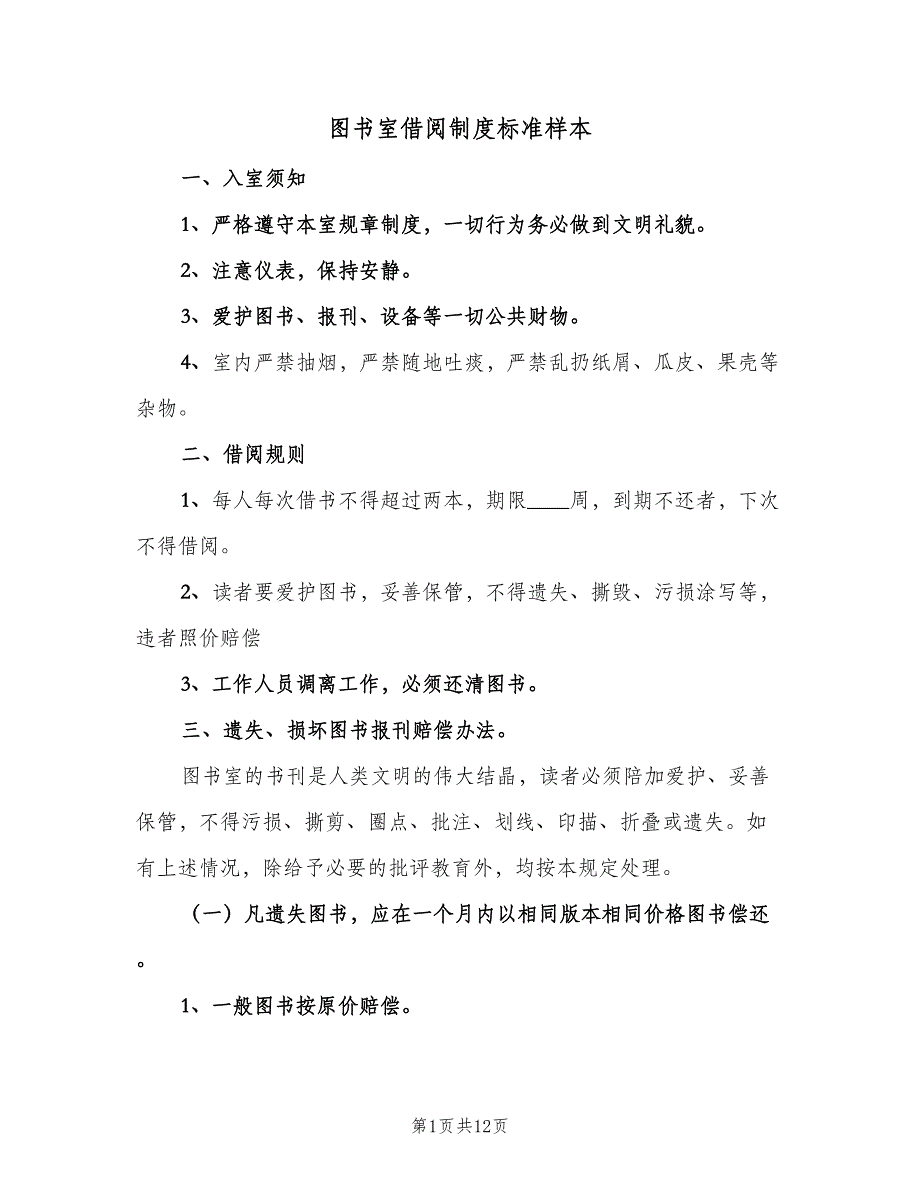 图书室借阅制度标准样本
一、入室须知
1、严格遵守本室规章制度，一切行为务必做到文明礼貌。
2、注意仪表，保持安静。
3、爱护图书、报刊、设备等一切公共财物。
4、室内严禁抽烟，严禁随地吐痰，严禁乱扔纸屑、瓜皮、果壳等
杂物。
二、借阅规则
1、每人每次借书不得超过两本，期限____周，到期不还者，下次
不得借阅。
2、读者要爱护图书，妥善保管，不得遗失、撕毁、污损涂写等，
违者照价赔偿
3、工作人员调离工作，必须还清图书。
三、遗失、损坏图书报刊赔偿办法。
图书室的书刊是人类文明的伟大结晶，读者必须陪加爱护、妥善
保管，不得污损、撕剪、圈点、批注、划线、印描、折叠或遗失。如
有上述情况，除给予必要的批评教育外，均按本规定处理。
（一）凡遗失图书，应在一个月内以相同版本相同价格图书偿还
。
1、一般图书按原价赔偿。
第1页共12页